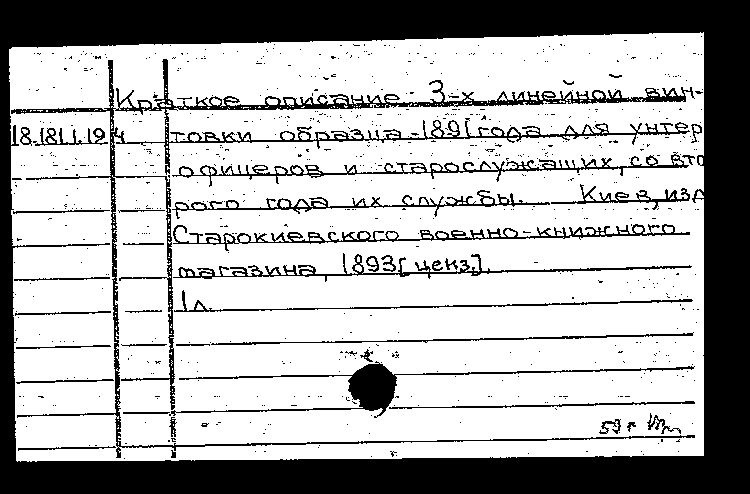 Краткое описание 3-х линейной вин-
18.181.1.194 товки образца 1891 года для унтер
офицеров и старослужащих, со вто
рого года их службы. Киев, изд
Старокиевского военно-книжного
магазина, 1893[ценз.].
1л.
59 г